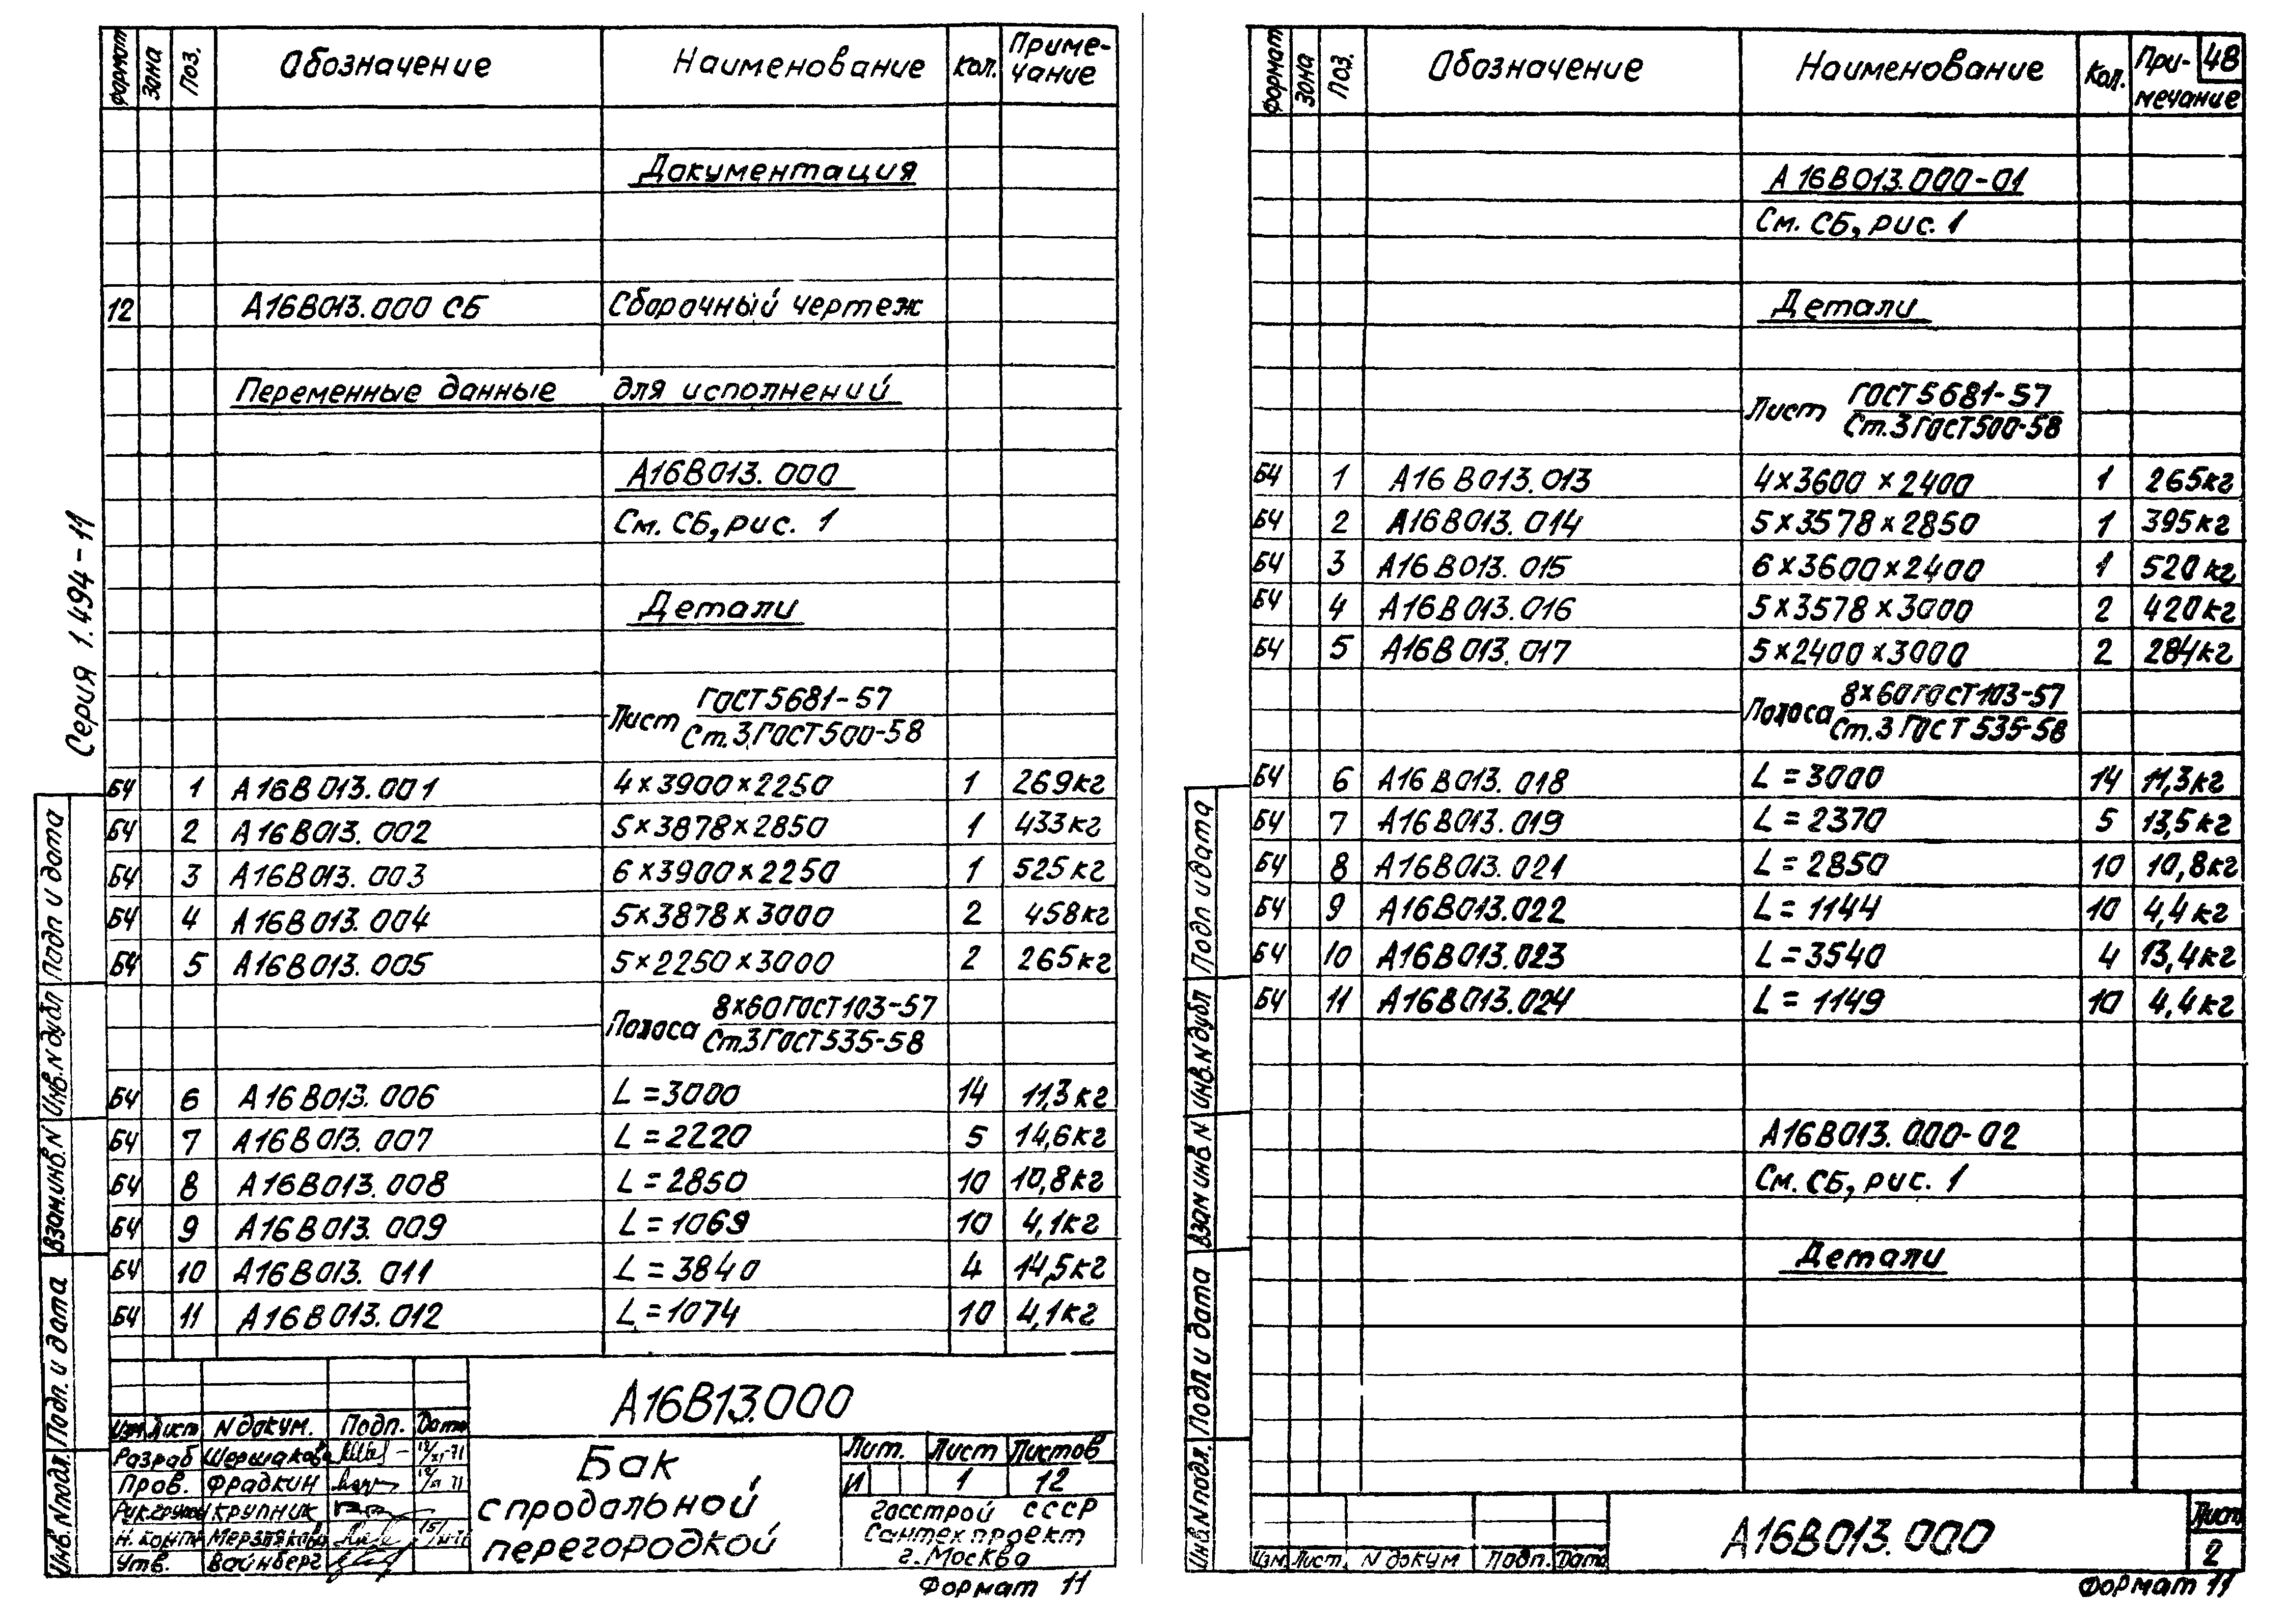 формат зона Поз. Обозначение Наименование Кол. Приме-
чание
Документация
12 А16В013.000 СБ Сборочный чертеж
Переменные данные для исполнений
А16В013.000
См. СБ, рис. 1
Детали
Лист ГОСТ 5681-57
Ст.3 ГОСТ 500-58
БЧ 1 А16В013.001 4×3900×2250 1 269кг
БЧ 2 А16В013.002 5×3878×2850 1 433кг
БЧ 3 А16В013.003 6×3900×2250 1 525кг
БЧ 4 А16В013.004 5×3878×3000 2 458кг
БЧ 5 А16В013.005 5×2250×3000 2 265кг
Полоса 8×60 ГОСТ 103-57
Ст.3 ГОСТ 535-58
БЧ 6 А16В013.006 L=3000 14 11,3кг
БЧ 7 А16В013.007 L=2220 5 14,6кг
БЧ 8 А16В013.008 L=2850 10 10,8кг
БЧ 9 А16В013.009 L=1069 10 4,1кг
БЧ 10 А16В013.011 L=3840 4 14,5кг
БЧ 11 А16В013.012 L=1074 10 4,1кг
Серия 1.494-11
Подп и дата
Инв.N дубл
Взам.инв.N
Подп. и дата
Инв.N подл.
А16В13.000
Изм Лист N докум. Подп. Дата
Разраб Шершакова
Пров. Фрадкин
Рук.группы Крупник
Н. контр Мерзлякова
Утв. Вайнберг
Бак
с продальной
перегородкой
Лит. Лист Листов
И 1 12
Госстрой СССР
Сантехпроект
г. Москва
Формат 11
формат зона Поз. Обозначение Наименование Кол. При-
мечание
48
А16В013.000-01
См. СБ, рис. 1
Детали
Лист ГОСТ 5681-57
Ст.3 ГОСТ 500-58
БЧ 1 А16В013.013 4×3600×2400 1 265кг
БЧ 2 А16В013.014 5×3578×2850 1 395кг
БЧ 3 А16В013.015 6×3600×2400 1 520кг
БЧ 4 А16В013.016 5×3578×3000 2 420кг
БЧ 5 А16В013.017 5×2400×3000 2 284кг
Полоса 8×60 ГОСТ 103-57
Ст.3 ГОСТ 535-58
БЧ 6 А16В013.018 L=3000 14 11,3кг
БЧ 7 А16В013.019 L=2370 5 13,5кг
БЧ 8 А16В013.021 L=2850 10 10,8кг
БЧ 9 А16В013.022 L=1144 10 4,4кг
БЧ 10 А16В013.023 L=3540 4 13,4кг
БЧ 11 А16В013.024 L=1149 10 4,4кг
А16В013.000-02
См. СБ, рис. 1
Детали
Подп и дата
Инв.N дубл
Взам инв.N
Подп и дата
Инв.N подл.
Изм. Лист. N докум Подп. Дата
А16В013.000
Лист
2
Формат 11